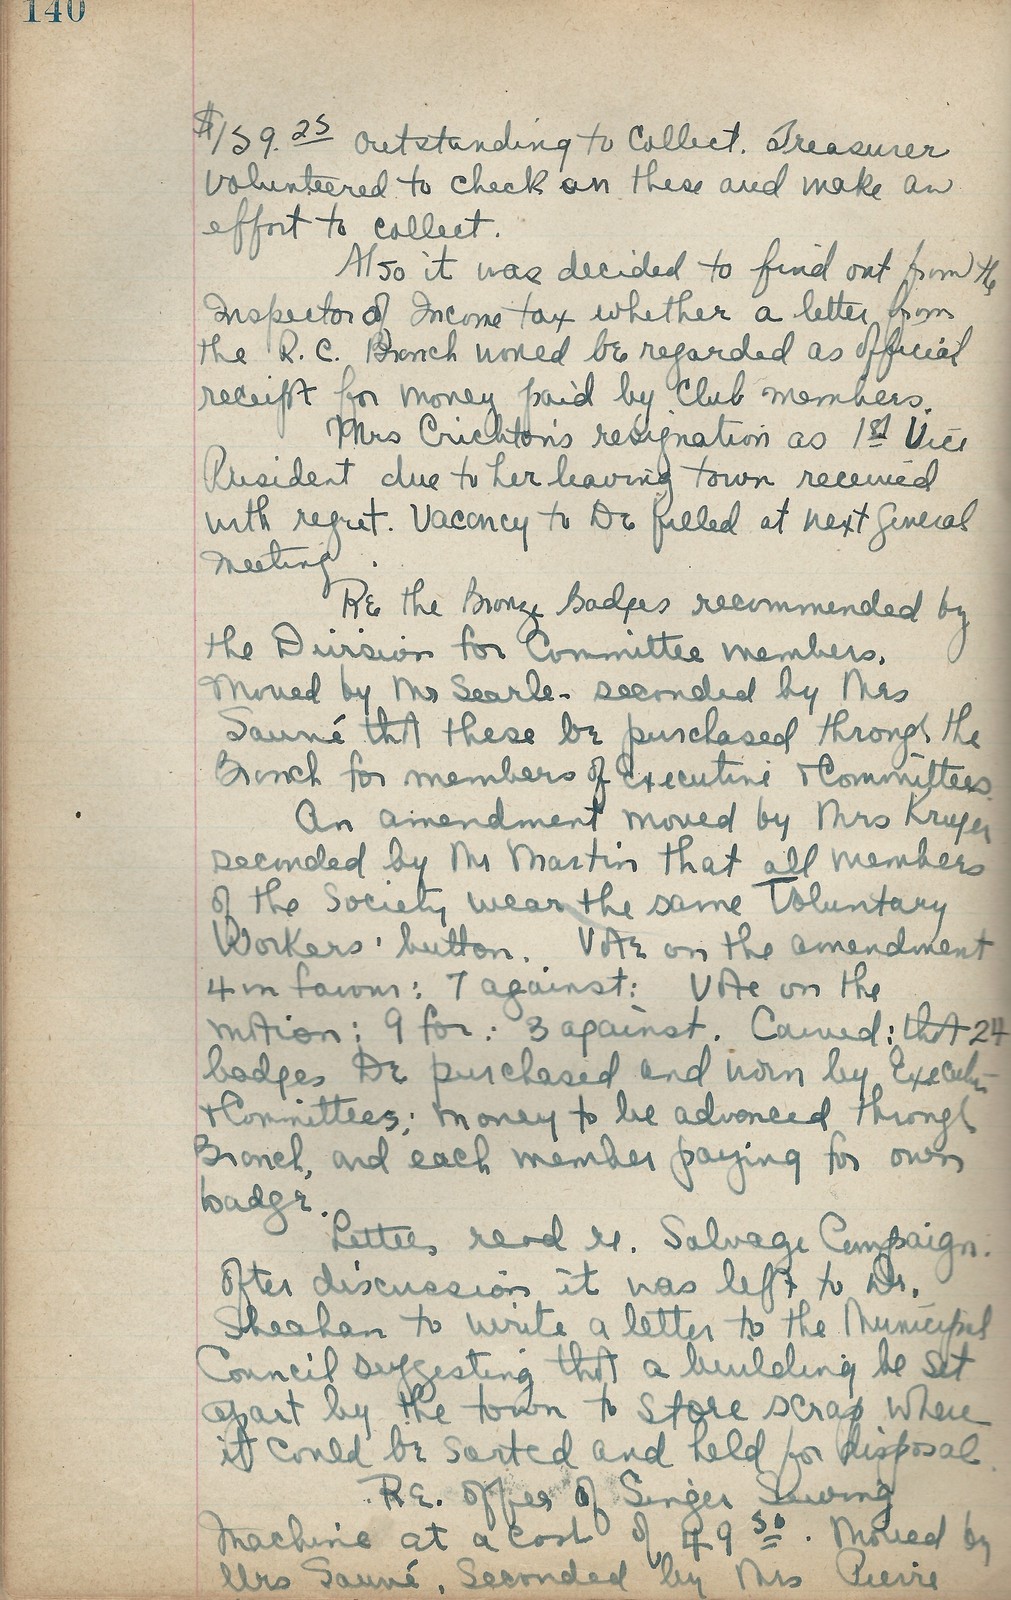 140
$159.25 outstanding to collect. Treasurer
volunteered to check on these and make an
effort to collect.
Also it was decided to find out from the
Inspector of Income tax whether a letter from
the R.C. Branch would be regarded as official
receipt for money paid by Club members.
Mrs Crichton's resignation as 1st Vice
President due to her leaving town received
with regret. Vacancy to be filled at next General
meeting.
Re the Bronze badges recommended by
the Division for Committee members.
Moved by Mr Searle - seconded by Mrs
Sauvé that these be purchased through the
Branch for members of Executive & Committees.
An amendment moved by Mrs Kruger
seconded by Mr Martin that all members
of the Society wear the same Voluntary
Workers' button. Vote on the amendment
4 in favour: 7 against: Vote on the
motion: 9 for: 3 against. Carried: that 24
badges be purchased and worn by Executive
& Committees; money to be advanced through
Branch, and each member paying for own
badge.
Letters read re. Salvage Campaign.
After discussion it was left to Dr.
Sheahan to write a letter to the Municipal
Council suggesting that a building be set
apart by the town to store scrap where
it could be sorted and held for disposal.
Re. offer of Singer Sewing
Machine at a cost of 49.50. Moved by
Mrs Sauvé, Seconded by Mrs Pierre